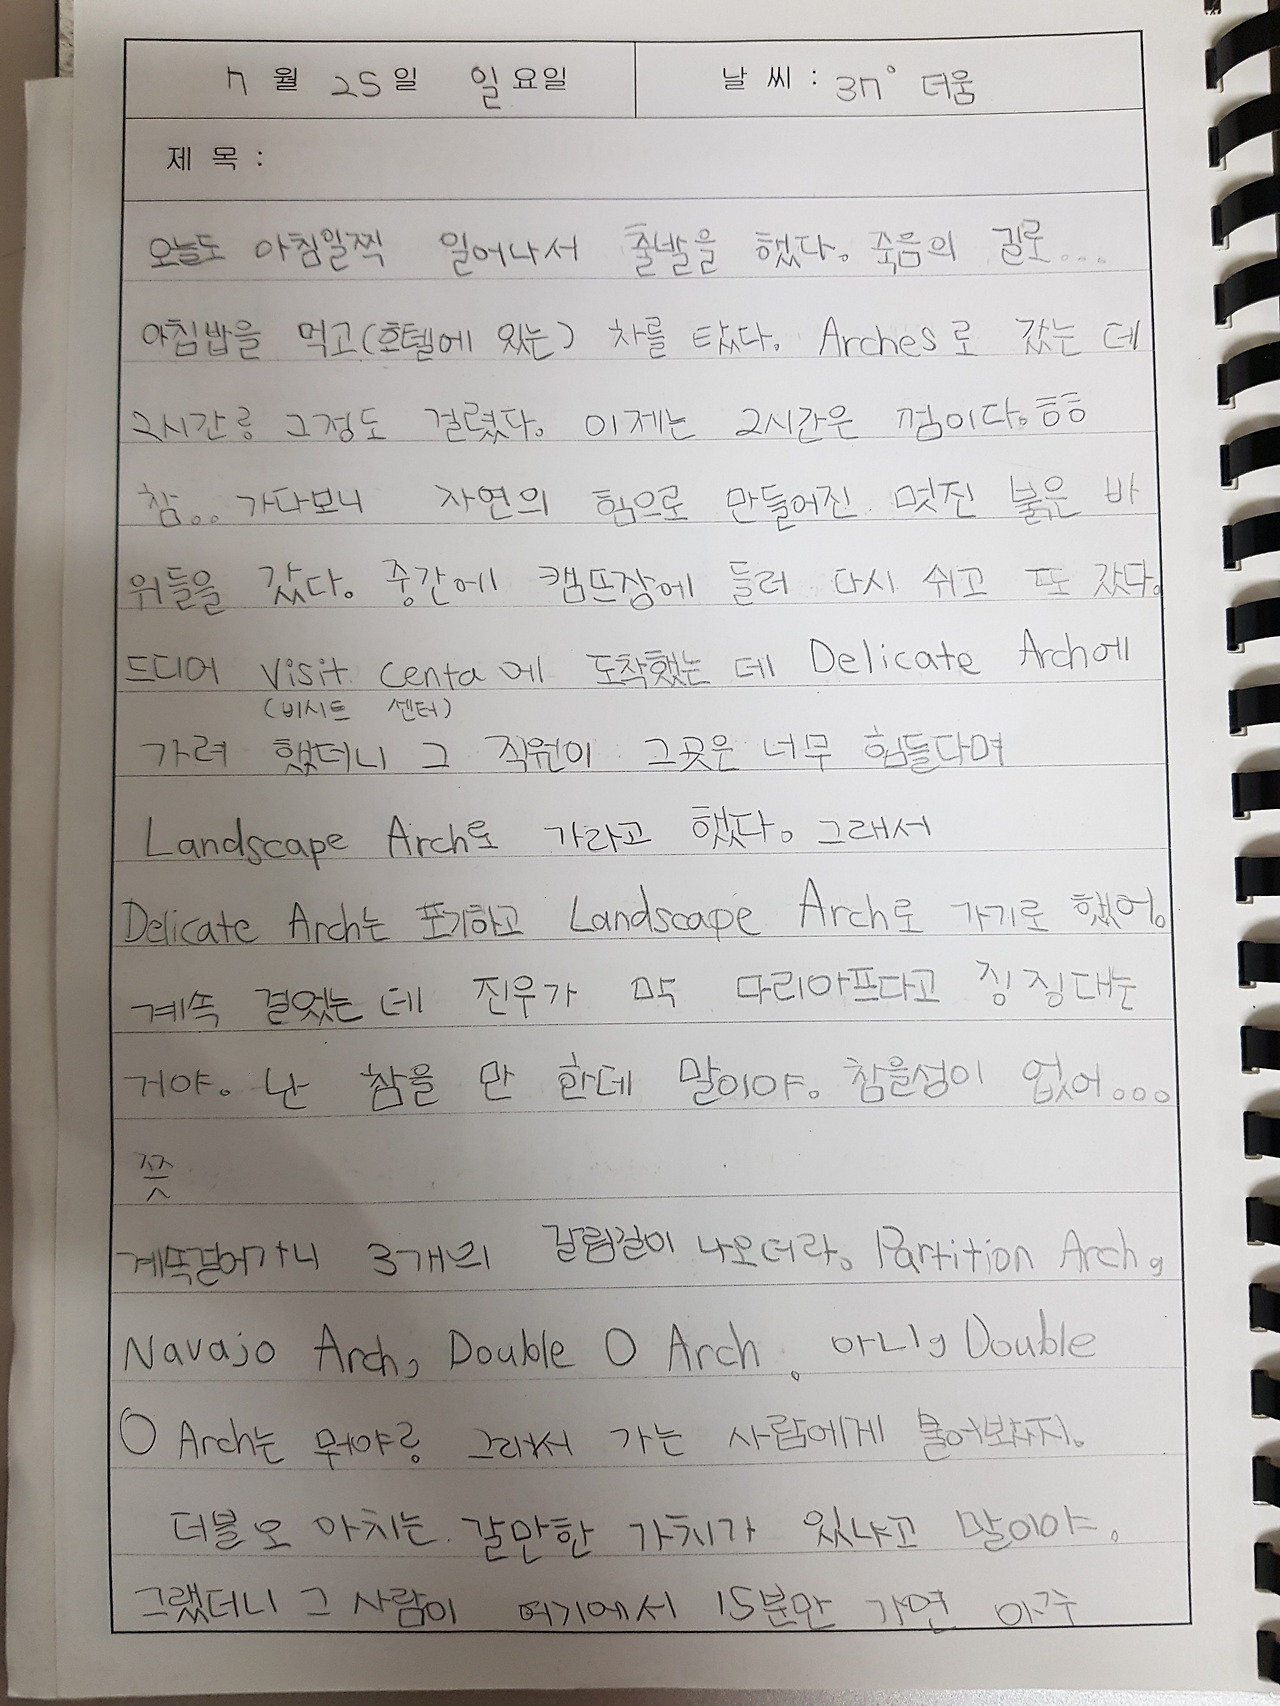 7월 25일 일요일 날씨: 37° 더움
제목:
오늘도 아침일찍 일어나서 출발을 했다. 죽음의 길로...
아침밥을 먹고(호텔에 있는) 차를 탔다. Arches로 갔는 데
2시간? 그정도 걸렸다. 이제는 2시간은 껌이다. ㅎㅎ
참.. 가다보니 자연의 힘으로 만들어진 멋진 붉은 바
위들을 갔다. 중간에 캠프장에 들러 다시 쉬고 또 갔다.
드디어 Visit centa에 도착했는 데 Delicate Arch에
(비시트 센터)
가려 했더니 그 직원이 그곳은 너무 힘들다며
Landscape Arch로 가라고 했다. 그래서
Delicate Arch는 포기하고 Landscape Arch로 가기로 했어.
계속 걸었는 데 진우가 막 다리아프다고 징징대는
거야. 난 참을 만 한데 말이야. 참을성이 없어...
쯧
계속걸어가니 3개의 갈림길이 나오더라. Partition Arch,
Navajo Arch, Double O Arch. 아니, Double
O Arch는 뭐야? 그래서 가는 사람에게 물어봤지.
더블 오 아치는 갈만한 가치가 있냐고 말이야.
그랬더니 그 사람이 여기에서 15분만 가면 아주